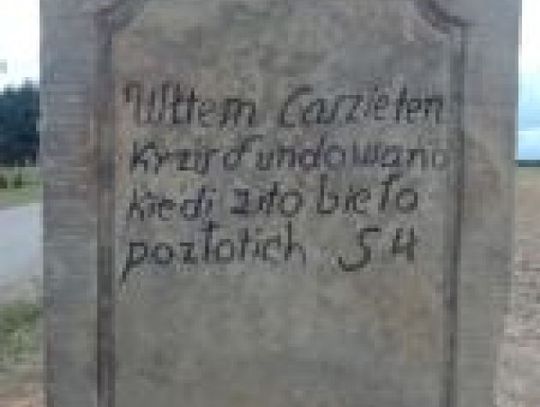 Wttem Carzieten
Kyzis fundowano
kiedi zito bieło
pozłotich 54